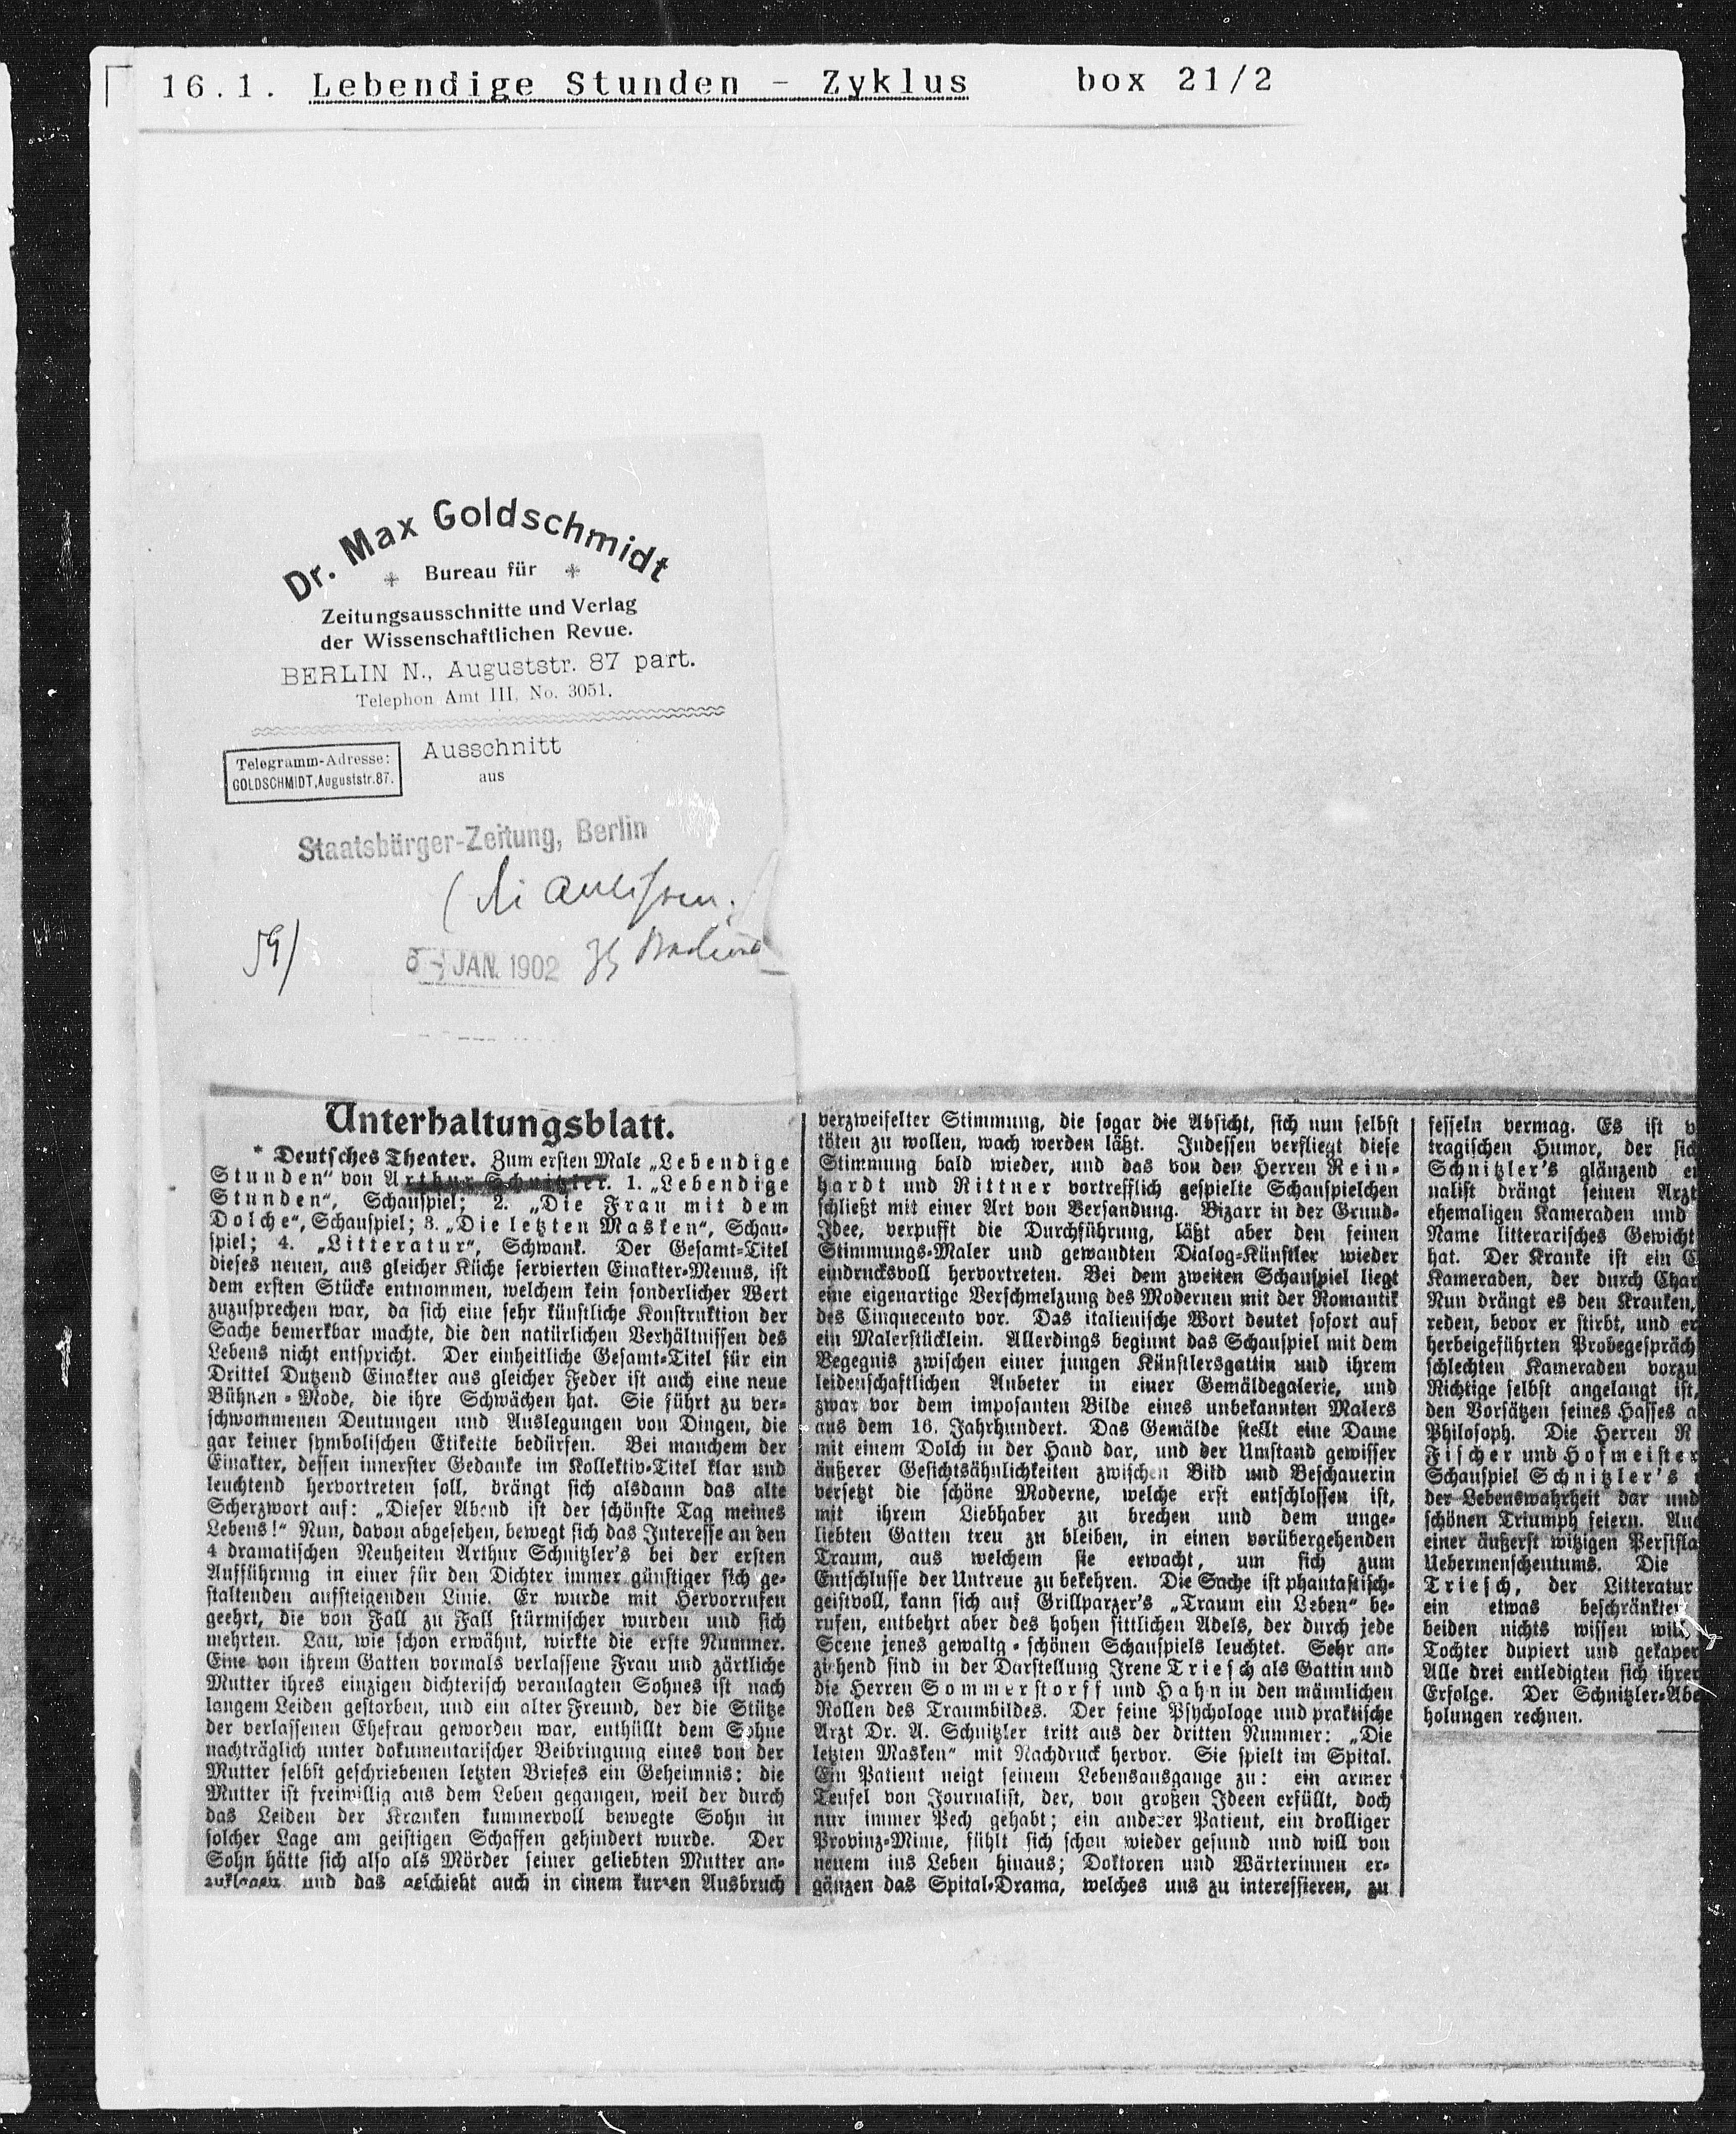 16.1. Lebendige Stunden - Zyklus box 21/2
Dr. Max Goldschmidt
Bureau für
Zeitungsausschnitte und Verlag
der Wissenschaftlichen Revue.
BERLIN N., Auguststr. 87 part.
Telephon Amt III, No. 3051.
Telegramm-Adresse:
GOLDSCHMIDT, Auguststr. 87.
Ausschnitt
aus
Staatsbürger-Zeitung, Berlin
59)
JAN. 1902
Unterhaltungsblatt.
* Deutsches Theater. Zum ersten Male „Lebendige
Stunden" von Arthur Schnitzler. 1. „Lebendige
Stunden", Schauspiel; 2. „Die Frau mit dem
Dolche", Schauspiel; 3. „Die letzten Masken", Schau-
spiel; 4. „Litteratur", Schwank. Der Gesamt-Titel
dieses neuen, aus gleicher Küche servierten Einakter-Menus, ist
dem ersten Stücke entnommen, welchem kein sonderlicher Wert
zuzusprechen war, da sich eine sehr künstliche Konstruktion der
Sache bemerkbar machte, die den natürlichen Verhältnissen des
Lebens nicht entspricht. Der einheitliche Gesamt-Titel für ein
Drittel Dutzend Einakter aus gleicher Feder ist auch eine neue
Bühnen-Mode, die ihre Schwächen hat. Sie führt zu ver-
schwommenen Deutungen und Auslegungen von Dingen, die
gar keiner symbolischen Etikette bedürfen. Bei manchem der
Einakter, dessen innerster Gedanke im Kollektiv-Titel klar und
leuchtend hervortreten soll, drängt sich alsdann das alte
Scherzwort auf: „Dieser Abend ist der schönste Tag meines
Lebens!" Nun, davon abgesehen, bewegt sich das Interesse an den
4 dramatischen Neuheiten Arthur Schnitzler's bei der ersten
Aufführung in einer für den Dichter immer günstiger sich ge-
staltenden aufsteigenden Linie. Er wurde mit Hervorrufen
geehrt, die von Fall zu Fall stürmischer wurden und sich
mehrten. Lau, wie schon erwähnt, wirkte die erste Nummer.
Eine von ihrem Gatten vormals verlassene Frau und zärtliche
Mutter ihres einzigen dichterisch veranlagten Sohnes ist nach
langem Leiden gestorben, und ein alter Freund, der die Stütze
der verlassenen Ehefrau geworden war, enthüllt dem Sohne
nachträglich unter dokumentarischer Beibringung eines von der
Mutter selbst geschriebenen letzten Briefes ein Geheimnis: die
Mutter ist freiwillig aus dem Leben gegangen, weil der durch
das Leiden der Kranken kummervoll bewegte Sohn in
solcher Lage am geistigen Schaffen gehindert wurde. Der
Sohn hätte sich also als Mörder seiner geliebten Mutter an-
zuklagen und das geschieht auch in einem kurzen Ausbruch
verzweifelter Stimmung, die sogar die Absicht, sich nun selbst
töten zu wollen, wach werden läßt. Indessen verfliegt diese
Stimmung bald wieder, und das von den Herren Rein-
hardt und Rittner vortrefflich gespielte Schauspielchen
schließt mit einer Art von Versandung. Bizarr in der Grund-
Idee, verpufft die Durchführung, läßt aber den feinen
Stimmungs-Maler und gewandten Dialog-Künstler wieder
eindrucksvoll hervortreten. Bei dem zweiten Schauspiel liegt
eine eigenartige Verschmelzung des Modernen mit der Romantik
des Cinquecento vor. Das italienische Wort deutet sofort auf
ein Malerstücklein. Allerdings beginnt das Schauspiel mit dem
Begegnis zwischen einer jungen Künstlersgattin und ihrem
leidenschaftlichen Anbeter in einer Gemäldegalerie, und
zwar vor dem imposanten Bilde eines unbekannten Malers
aus dem 16. Jahrhundert. Das Gemälde stellt eine Dame
mit einem Dolch in der Hand dar, und der Umstand gewisser
äußerer Gesichtsähnlichkeiten zwischen Bild und Beschauerin
versetzt die schöne Moderne, welche erst entschlossen ist,
mit ihrem Liebhaber zu brechen und dem unge-
liebten Gatten treu zu bleiben, in einen vorübergehenden
Traum, aus welchem sie erwacht, um sich zum
Entschlusse der Untreue zu bekehren. Die Sache ist phantastisch-
geistvoll, kann sich auf Grillparzer's „Traum ein Leben" be-
rufen, entbehrt aber des hohen sittlichen Adels, der durch jede
Scene jenes gewaltig-schönen Schauspiels leuchtet. Sehr an-
ziehend sind in der Darstellung Irene Triesch als Gattin und
die Herren Sommerstorff und Hahn in den männlichen
Rollen des Traumbildes. Der feine Psychologe und praktische
Arzt Dr. A. Schnitzler tritt aus der dritten Nummer: „Die
letzten Masken" mit Nachdruck hervor. Sie spielt im Spital.
Ein Patient neigt seinem Lebensausgange zu: ein armer
Teufel von Journalist, der, von großen Ideen erfüllt, doch
nur immer Pech gehabt; ein anderer Patient, ein drolliger
Provinz-Mime, fühlt sich schon wieder gesund und will von
neuem ins Leben hinaus; Doktoren und Wärterinnen er-
gänzen das Spital-Drama, welches uns zu interessieren, zu
fesseln vermag. Es ist
tragischen Humor, der
Schnitzler's glänzend
nalist drängt seinen Arzt
ehemaligen Kameraden und
Name litterarisches Gewicht
hat. Der Kranke ist ein
Kameraden, der durch
Nun drängt es den Kranken,
reden, bevor er stirbt, und
herbeigeführten Probegespräch
schlechten Kameraden
Richtige selbst angelangt ist,
den Vorsätzen seines Hasses
Philosoph. Die Herren
Fischer und Hofmeister
Schauspiel Schnitzler's
der Lebenswahrheit dar und
schönen Triumph feiern.
einer äußerst witzigen
Uebermenschentums. Die
Triesch, der Litteratur
ein etwas beschränkter
beiden nichts wissen
Tochter dupiert und
Alle drei entledigten sich
Erfolge. Der
holungen rechnen.